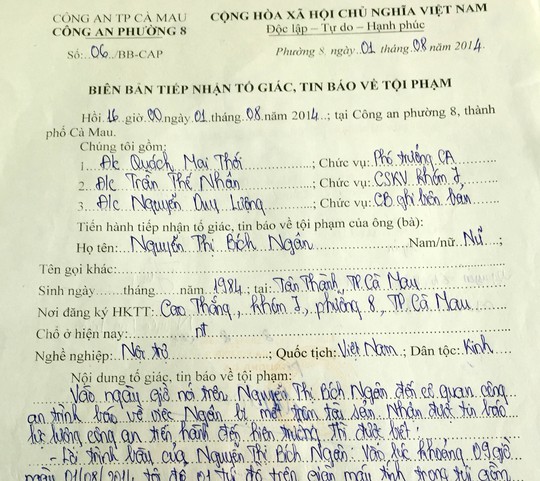 CÔNG AN TP CÀ MAU
CÔNG AN PHƯỜNG 8
CỘNG HÒA XÃ HỘI CHỦ NGHĨA VIỆT NAM
Độc lập – Tự do – Hạnh phúc
Số: 06 /BB-CAP
Phường 8, ngày 01 tháng 08 năm 2014
BIÊN BẢN TIẾP NHẬN TỐ GIÁC, TIN BÁO VỀ TỘI PHẠM
Hồi 16 giờ 00 ngày 01 tháng 08 năm 2014; tại Công an phường 8, thành
phố Cà Mau.
Chúng tôi gồm:
1. Đ/c Quách Mai Thới ; Chức vụ: Phó trưởng CA
2. Đ/c Trần Thế Nhân ; Chức vụ: CSKV khóm 7
3. Đ/c Nguyễn Duy Lương ; Chức vụ: CB ghi biên bản
Tiến hành tiếp nhận tố giác, tin báo về tội phạm của ông (bà):
Họ tên: Nguyễn Thị Bích Ngân Nam/nữ: Nữ ;
Tên gọi khác:
Sinh ngày tháng năm 1984; tại: Tân Thành, TP. Cà Mau
Nơi đăng ký HKTT: Cao Thắng, khóm 7, phường 8, TP. Cà Mau
Chỗ ở hiện nay: nt
Nghề nghiệp: Nội trợ ; Quốc tịch: Việt Nam ; Dân tộc: Kinh
Nội dung tố giác, tin báo về tội phạm:
Vào ngày giờ nói trên Nguyễn Thị Bích Ngân đến cơ quan công
an trình báo về việc Ngân bị mất trộm tài sản. Nhận được tin báo
lực lượng công an tiến hành đến hiện trường thì được biết:
- Lời trình bày của Nguyễn Thị Bích Ngân: Vào lúc khoảng 09 giờ
ngày 01/08/2014 tôi để trên máy tính trong túi